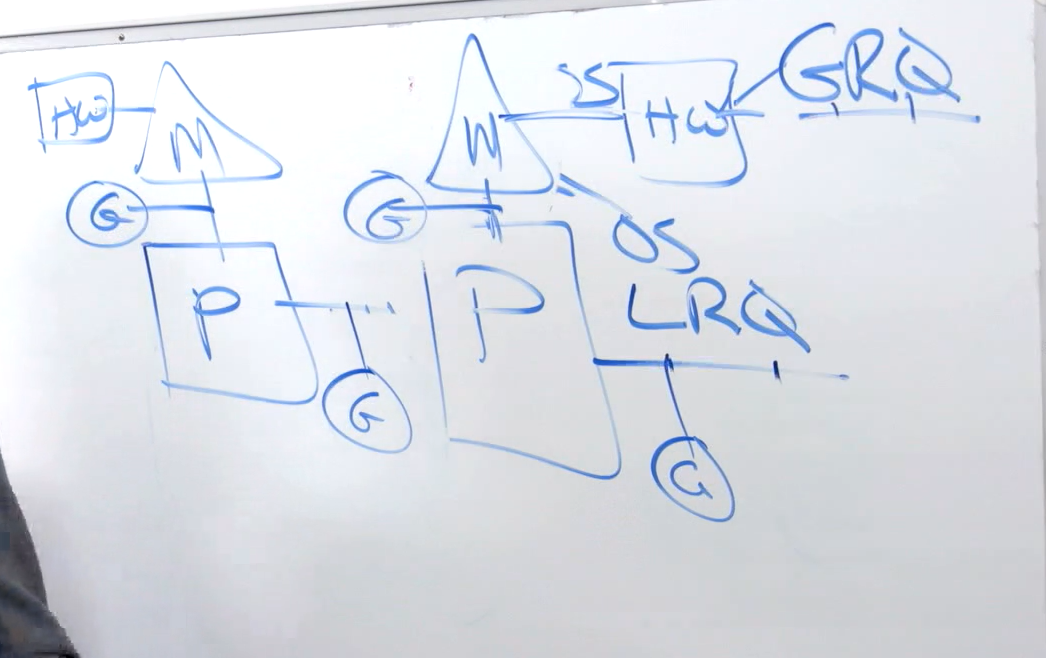 HW
M
G
P
G
M
OS
HW
GRQ
G
OS
P
LRQ
G